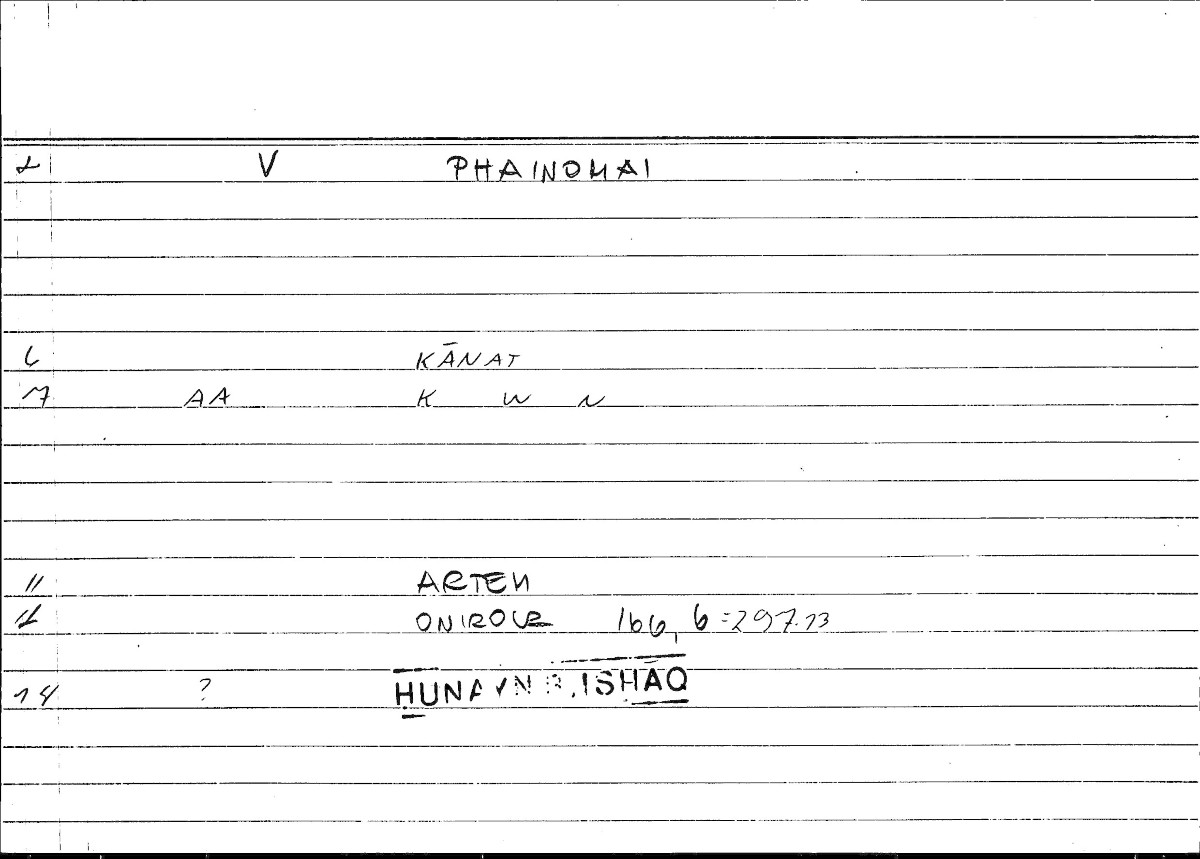 1 V PHAINOMAI
6 KĀNAT
7 AA K W N
11 ARTEM
12 ONIROCR 166, 6=297.13
14 ? HUNAYN B. ISHĀQ